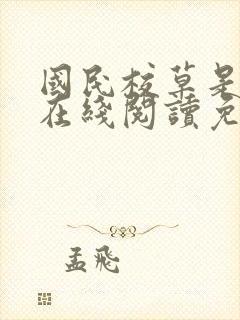 國民校草是
在綫閱讀免
孟飛